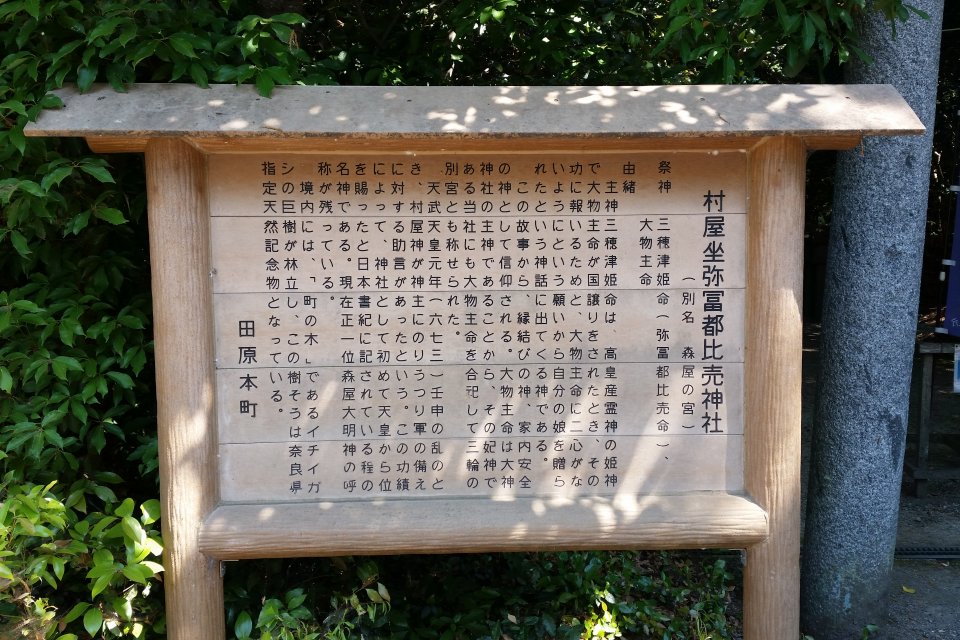 村屋坐弥冨都比売神社
（別名　森屋の宮）
祭神　三穂津姫命（弥冨都比売命）、
大物主命
由緒
主神三穂津姫命は　高皇産霊神の姫神
で大物主命が国譲りをされたとき、その
功に報いるためと、大物主命に二心がな
いようにという願いから自分の娘を贈ら
れたという神話に出てくる神である。
この故事から、縁結びの神、家内安全
の神として信仰される。大物主命は大神
神社の主神であることから、その妃神で
ある当社にも大物主命を合祀して三輪の
別宮とも称せられた。
天武天皇元年（六七三）壬申の乱のと
き、村屋神が神主にのりうつり軍の備え
に対する助言があったという。この功績
によって、神社として初めて天皇から位
を賜ったと日本書紀に記されている程の
名神である。現在正一位森屋大明神の呼
称が残っている。
境内には、「町の木」であるイチイガ
シの巨樹が林立し、この樹そうは奈良県
指定天然記念物となっている。
田原本町